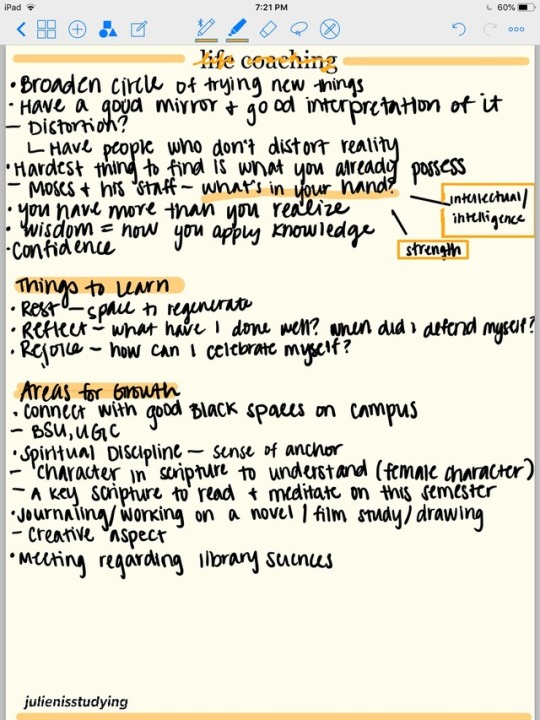 iPad
7:21 PM
60%
life coaching
• Broaden circle of trying new things
• Have a good mirror + good interpretation of it
– Distortion?
Have people who don't distort reality
• Hardest thing to find is what you already possess
– Moses + his staff – what's in your hand?
intellectual/
intelligence
• you have more than you realize
• wisdom = how you apply knowledge
strength
• Confidence
Things to Learn
• Rest – space to regenerate
• Reflect – what have I done well? when did I defend myself?
• Rejoice – how can I celebrate myself?
Areas for Growth
• Connect with good Black spaces on campus
– BSU, UGC
• Spiritual Discipline – sense of anchor
– Character in scripture to understand (female character)
– A key scripture to read + meditate on this semester
• Journaling/working on a novel/film study/drawing
– Creative aspect
• Meeting regarding library sciences
julienisstudying